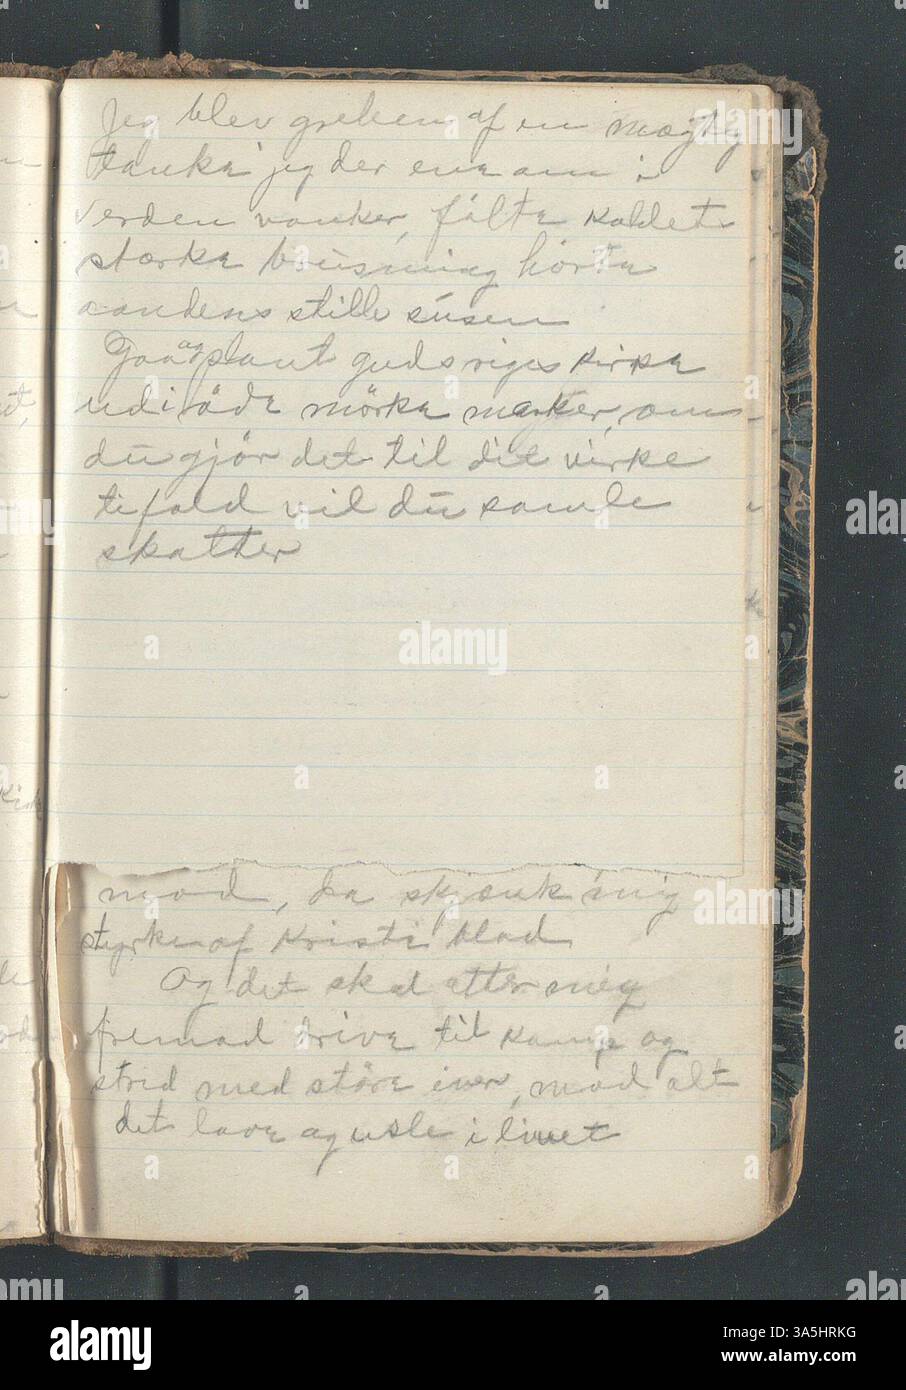 Jeg blev greben af en mægtig
tanke jeg der ene om i
verden vanker, følte kaldet
stærke brusning hørte
aandens stille susen
Gaa og plant guds riges kirke
ud i øde mörke marker, om
du gjör det til dit virke
tifold vil du samle
skatter
mod, da skjænk mig
styrke af Kristi blod
Og det skal atter mig
fremad drive til kamp og
strid med större iver, mod alt
det lave og usle i livet
alamy
alamy
Image ID: 3A5HRKG
www.alamy.com